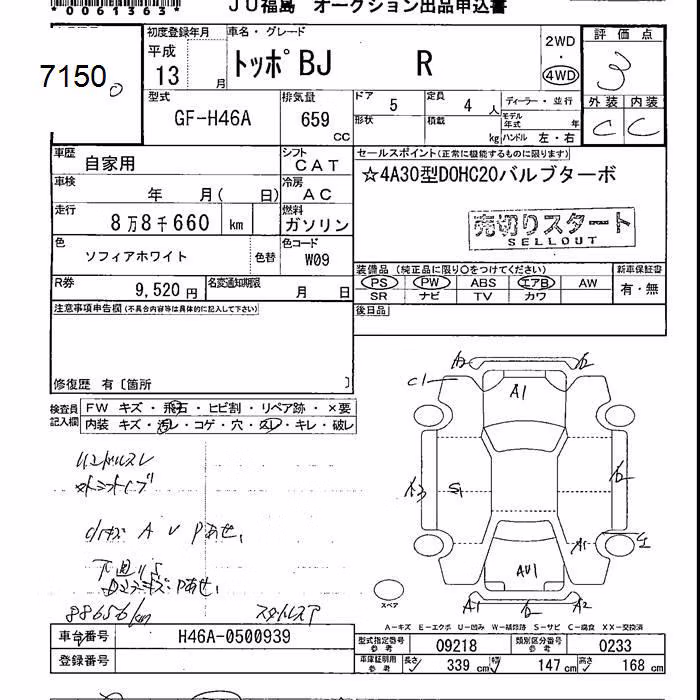 *0061363*
JU福島 オークション出品申込書
7150
初度登録年月
平成
13
月
車名・グレード
トッポBJ R
2WD
・
4WD
評価点
3
外装 内装
C C
型式
GF-H46A
排気量
659
CC
ドア 5
定員 4 人
ディーラー・並行
形状
積載
kg
モデル年式
年
ハンドル 左・右
車歴
自家用
シフト
CAT
セールスポイント(正常に機能するものに限ります)
☆4A30型DOHC20バルブターボ
車検
年 月( 日)
冷房
AC
走行
8万8千660 km
燃料
ガソリン
売切りスタート
SELLOUT
色
ソフィアホワイト
色替
色コード
W09
装備品(純正品に限り○をつけてください)
新車保証書
PS PW ABS エアB AW
SR ナビ TV カワ
有・無
R券
9,520円
名変通知期限
月 日
後日品
注意事項申告欄(不具合内容等は具体的に記入して下さい)
修復歴 有〔箇所 〕
検査員
記入欄
FW キズ・飛石・ヒビ割・リペア跡・×要
内装 キズ・汚レ・コゲ・穴・スレ・キレ・破レ
A2
C1
A1
A3
S1
A1
AU1
A1
A2
スペア
ハンドルスレ
小キズ A U Pあせ,
下廻りS
88656km
スタットレスア
A-キズ E-エクボ U-凹み W-補修跡 S-サビ C-腐食 XX-交換済
車台番号
H46A-0500939
登録番号
型式指定番号
参考
09218
類別区分番号
参考
0233
車庫証明用
参考
長さ 339 cm
幅 147 cm
高さ 168 cm